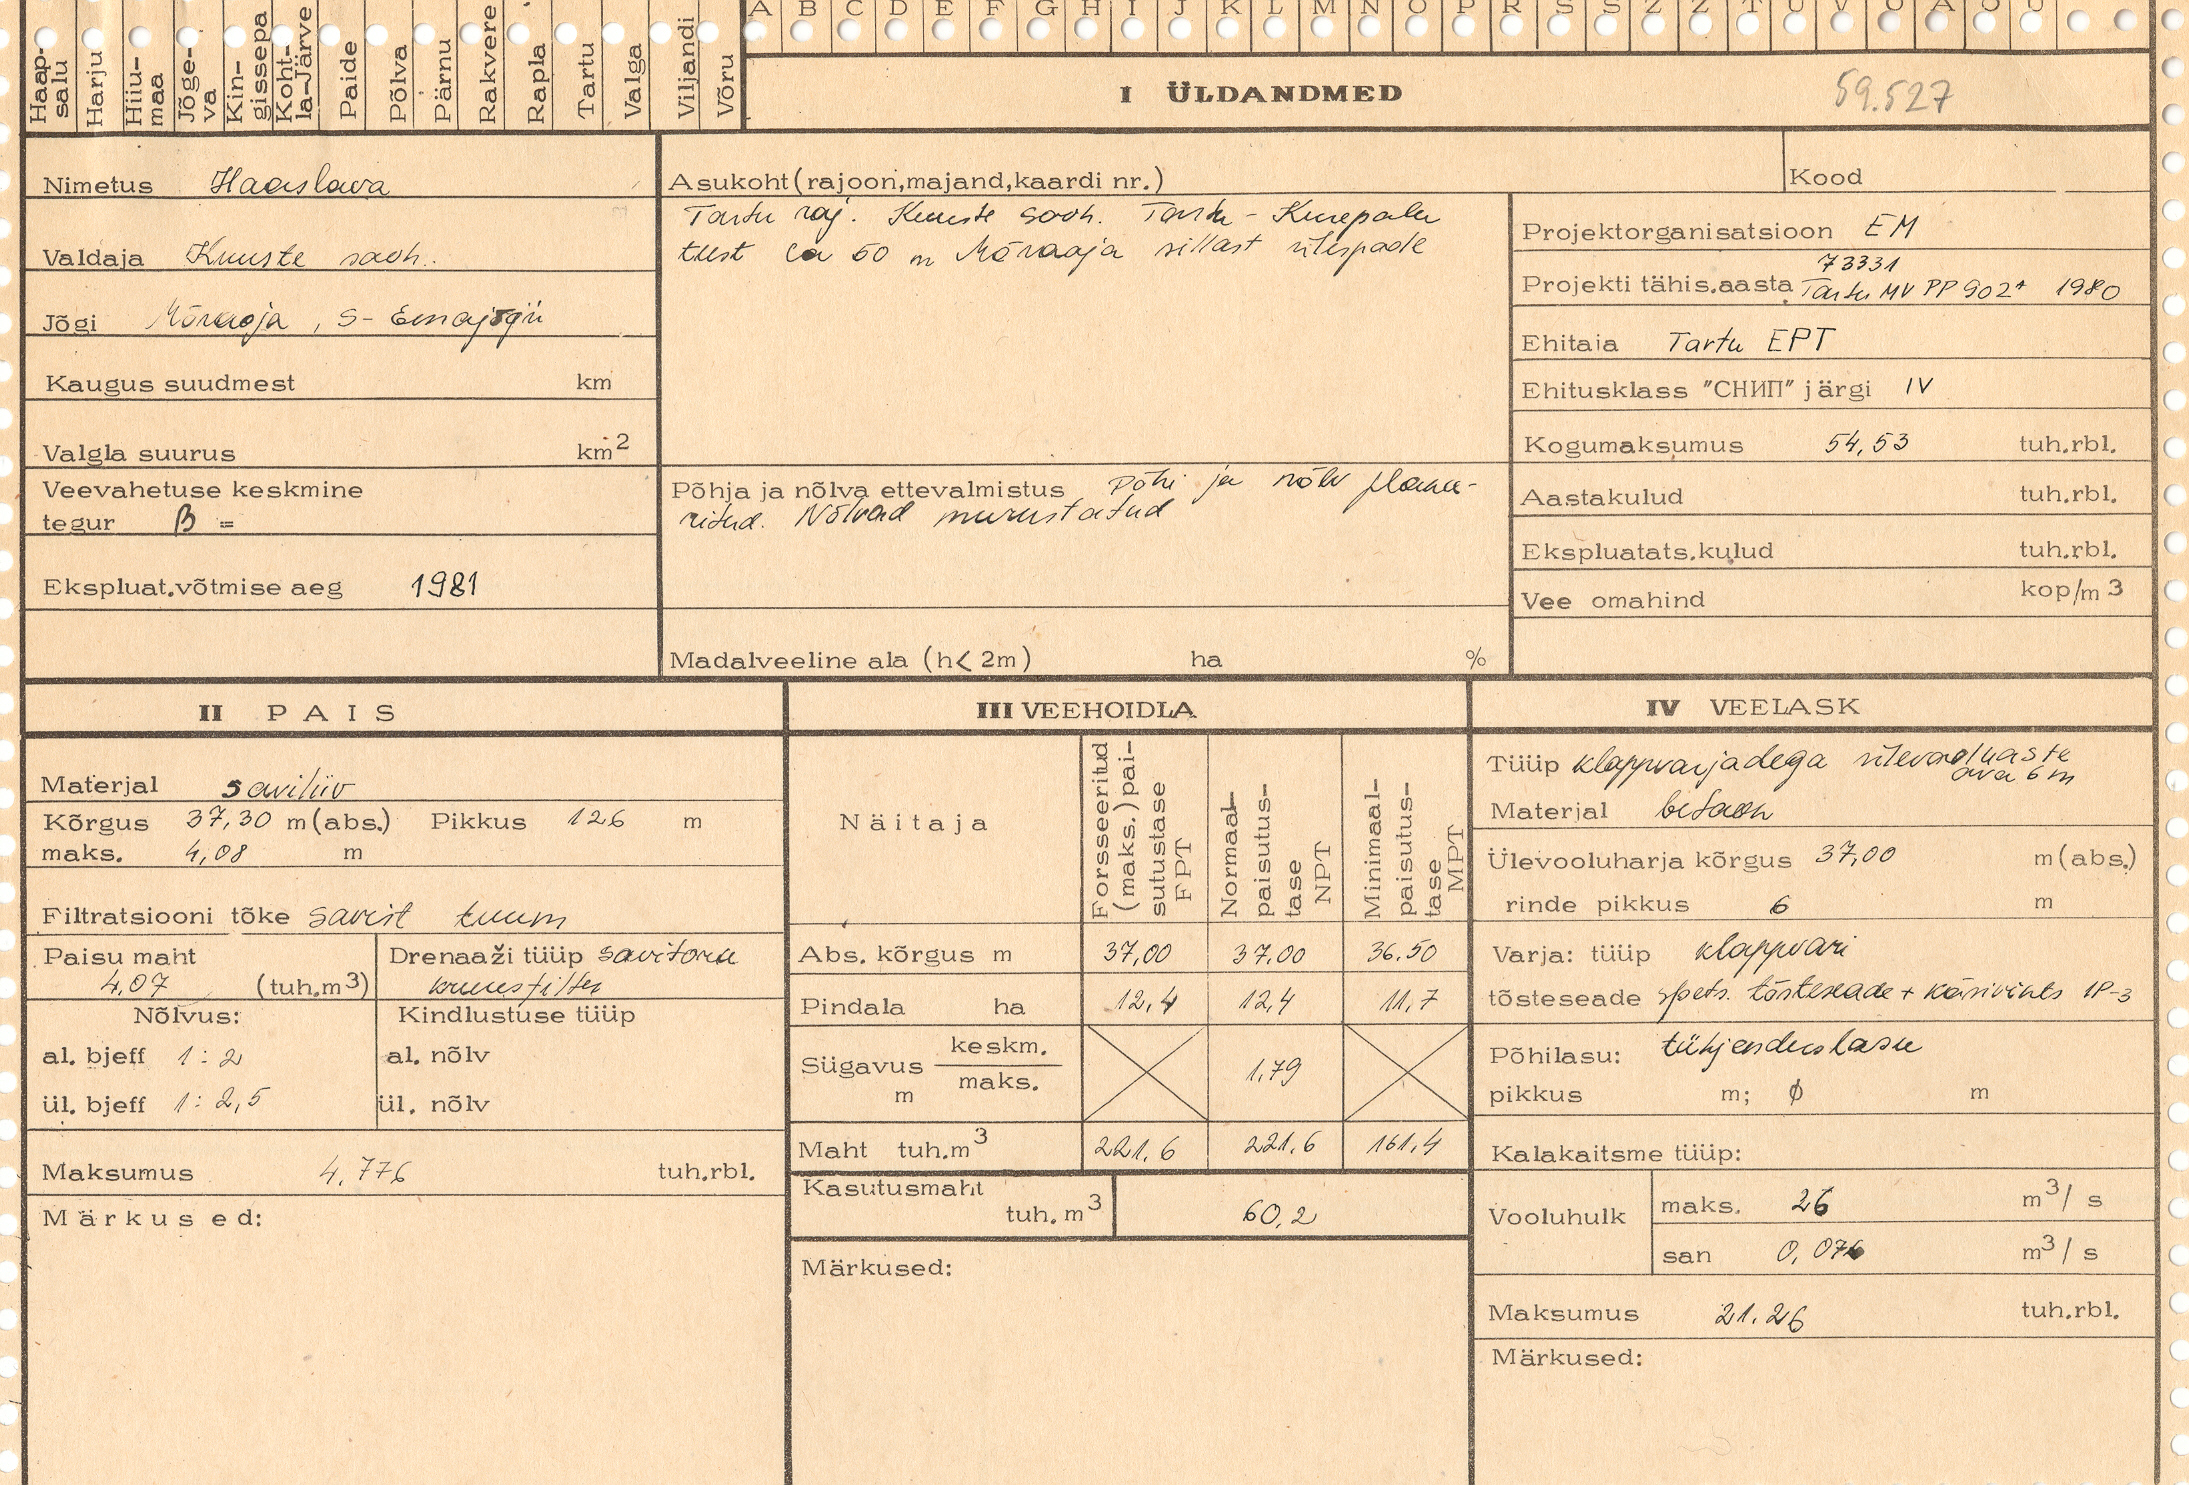 A B C D E F G H I J K L M N O P R S S Z Z T U V O A O U
Haap-salu Harju Hiiu-maa Jõge-va Kin-gissepa Koht-la-Järve Paide Põlva Pärnu Rakvere Rapla Tartu Valga Viljandi Võru
I ÜLDANDMED
59.527
Nimetus Haaslava
Valdaja Kuuste sovh.
Jõgi Mõraoja, S-Emajõgi
Kaugus suudmest km
Valgla suurus km2
Veevahetuse keskmine
tegur β =
Ekspluat.võtmise aeg 1981
Asukoht(rajoon,majand,kaardi nr.)
Kood
Tartu raj. Kuuste sovh. Tartu - Kurepalu
teest ca 50 m Mõraoja sillast ülespoole
Põhja ja nõlva ettevalmistus Põhi ja nõlv plane-
ritud. Nõlvad murustatud
Madalveeline ala (h< 2m) ha %
Projektorganisatsioon EM
73331
Projekti tähis.aasta Tartu MV PP 902+ 1980
Ehitaia Tartu EPT
Ehitusklass "СНИП" järgi IV
Kogumaksumus 54,53 tuh.rbl.
Aastakulud tuh.rbl.
Ekspluatats.kulud tuh.rbl.
Vee omahind kop/m3
II PAIS
Materjal saviliiv
Kõrgus 37,30 m(abs.) Pikkus 126 m
maks. 4,08 m
Filtratsiooni tõke savist tuum
Paisu maht
4,07 (tuh.m3)
Drenaaži tüüp savitoru
kruusfilter
Nõlvus:
al. bjeff 1:2
ül. bjeff 1:2,5
Kindlustuse tüüp
al. nõlv
ül. nõlv
Maksumus 4,776 tuh.rbl.
Märkused:
III VEEHOIDLA
Näitaja
Forsseeritud (maks.) pai-sutustase FPT
Normaal-paisutus-tase NPT
Minimaal-paisutus-tase MPT
Abs. kõrgus m 37,00 37,00 36.50
Pindala ha 12,4 12,4 11,7
Sügavus m keskm. maks. 1,79
Maht tuh.m3 221,6 221,6 161,4
Kasutusmaht
tuh.m3 60,2
Märkused:
IV VEELASK
Tüüp klappvarjadega
ava 6 m
Materjal betoon
Ülevooluharja kõrgus 37,00 m(abs.)
rinde pikkus 6 m
Varja: tüüp klappvari
tõsteseade spets. tõsteseade + käsivints 1P-3
Põhilasu: tühjenduslasu
pikkus m; ϕ m
Kalakaitsme tüüp:
Vooluhulk
maks. 26 m3/s
san 0,076 m3/s
Maksumus 21.26 tuh.rbl.
Märkused: